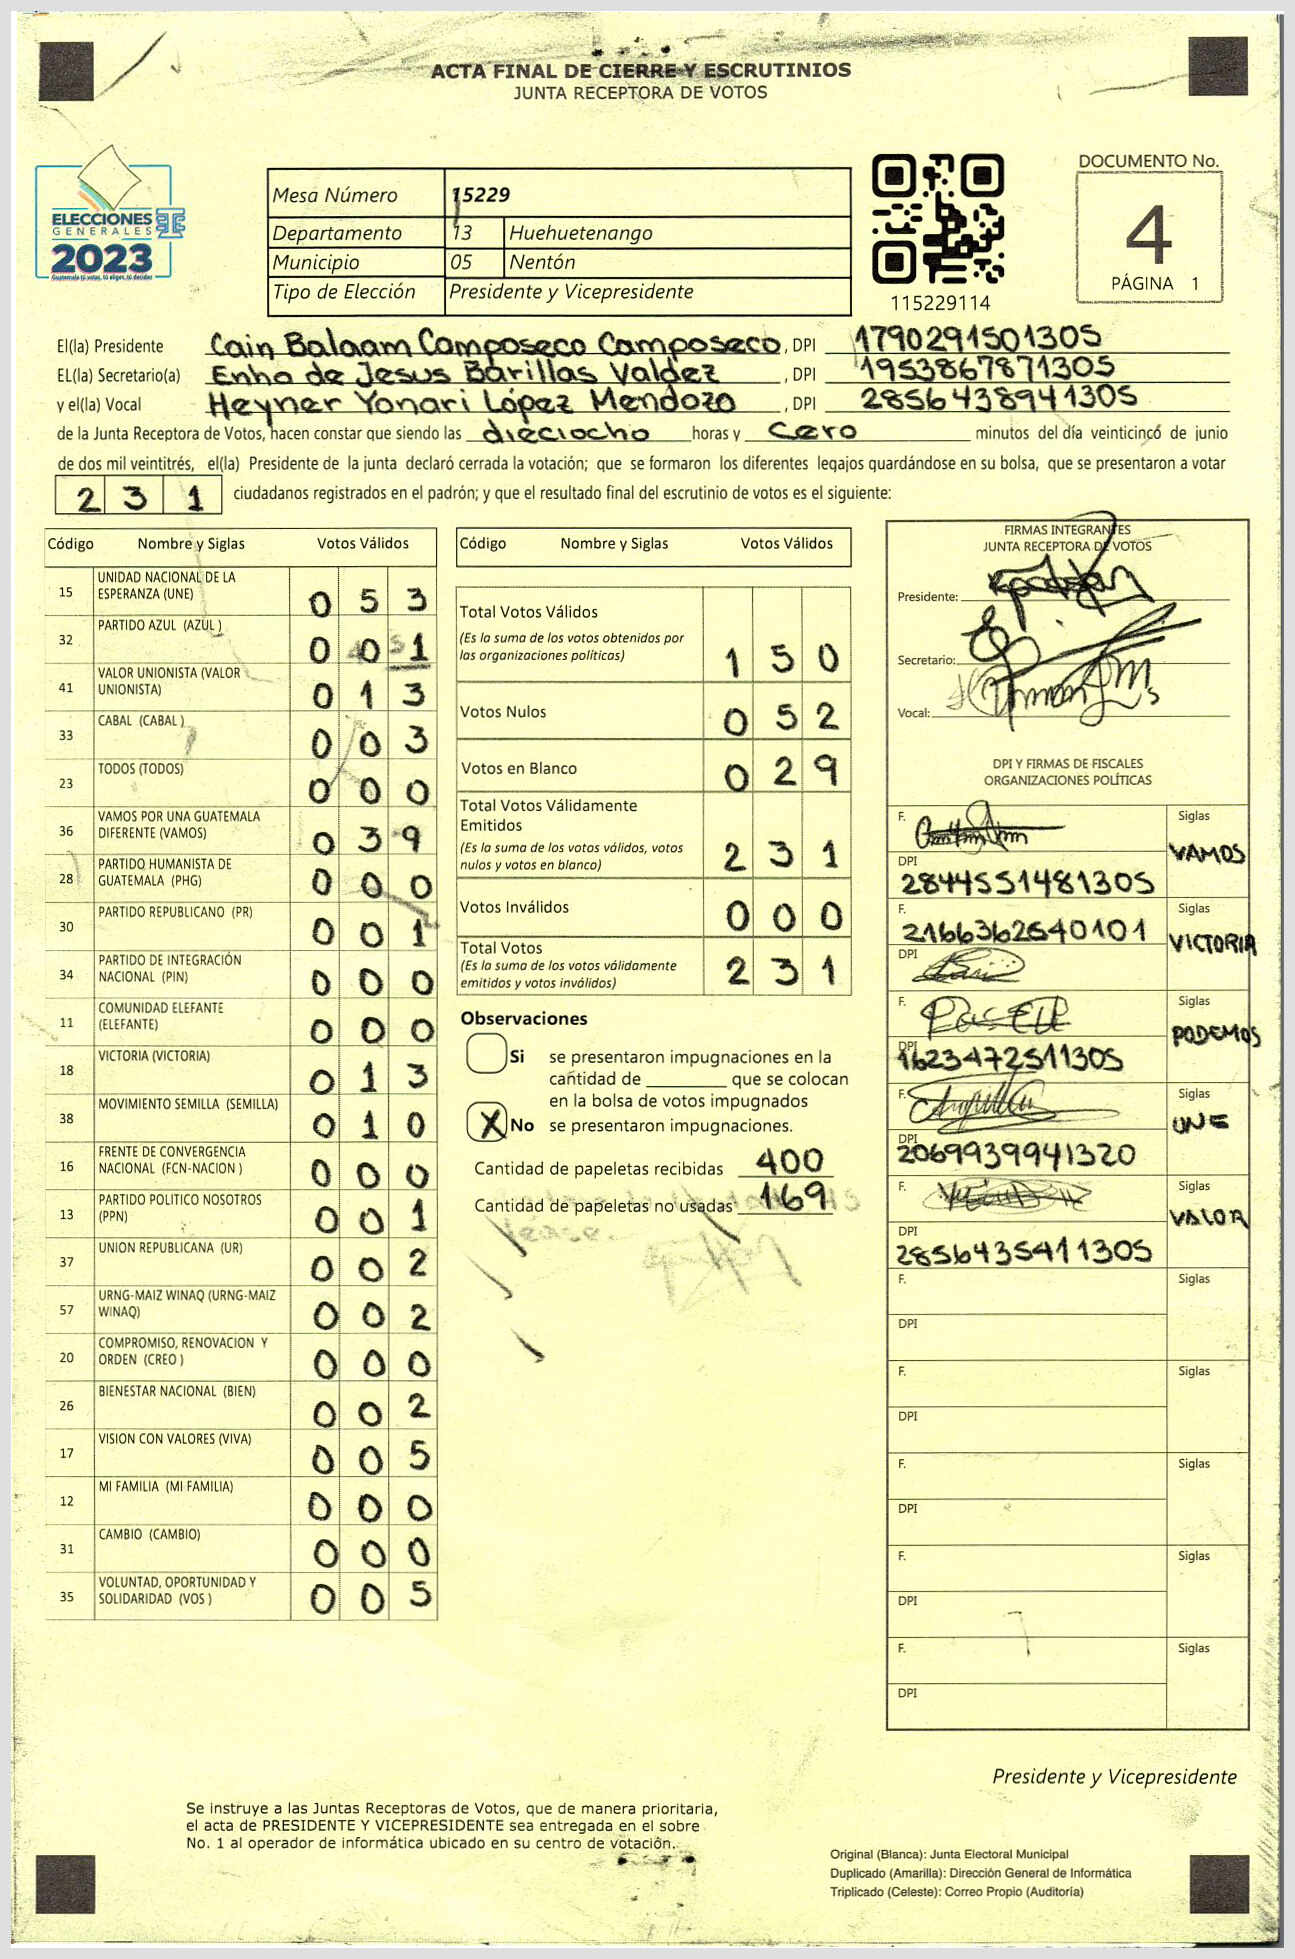 ACTA FINAL DE CIERRE Y ESCRUTINIOS
JUNTA RECEPTORA DE VOTOS
ELECCIONES
GENERALES
2023
Guatemala tú votas, tú eliges, tú decides
Mesa Número 15229
Departamento 13 Huehuetenango
Municipio 05 Nentón
Tipo de Elección Presidente y Vicepresidente
115229114
DOCUMENTO No.
4
PÁGINA 1
El(la) Presidente Cain Balaam Camposeco Camposeco, DPI 1790291501305
EL(la) Secretario(a) Enho de Jesus Barillas Valdez, DPI 1953867871305
y el(la) Vocal Heyner Yonari López Mendozo, DPI 2856438941305
de la Junta Receptora de Votos, hacen constar que siendo las dieciocho horas y cero minutos del día veinticinco de junio
de dos mil veintitrés, el(la) Presidente de la junta declaró cerrada la votación; que se formaron los diferentes legajos guardándose en su bolsa, que se presentaron a votar
2 3 1 ciudadanos registrados en el padrón; y que el resultado final del escrutinio de votos es el siguiente:
Código Nombre y Siglas Votos Válidos
15 UNIDAD NACIONAL DE LA ESPERANZA (UNE) 0 5 3
32 PARTIDO AZUL (AZUL ) 0 0 1
41 VALOR UNIONISTA (VALOR UNIONISTA) 0 1 3
33 CABAL (CABAL ) 0 0 3
23 TODOS (TODOS) 0 0 0
36 VAMOS POR UNA GUATEMALA DIFERENTE (VAMOS) 0 3 9
28 PARTIDO HUMANISTA DE GUATEMALA (PHG) 0 0 0
30 PARTIDO REPUBLICANO (PR) 0 0 1
34 PARTIDO DE INTEGRACIÓN NACIONAL (PIN) 0 0 0
11 COMUNIDAD ELEFANTE (ELEFANTE) 0 0 0
18 VICTORIA (VICTORIA) 0 1 3
38 MOVIMIENTO SEMILLA (SEMILLA) 0 1 0
16 FRENTE DE CONVERGENCIA NACIONAL (FCN-NACION ) 0 0 0
13 PARTIDO POLITICO NOSOTROS (PPN) 0 0 1
37 UNION REPUBLICANA (UR) 0 0 2
57 URNG-MAIZ WINAQ (URNG-MAIZ WINAQ) 0 0 2
20 COMPROMISO, RENOVACION Y ORDEN (CREO ) 0 0 0
26 BIENESTAR NACIONAL (BIEN) 0 0 2
17 VISION CON VALORES (VIVA) 0 0 5
12 MI FAMILIA (MI FAMILIA) 0 0 0
31 CAMBIO (CAMBIO) 0 0 0
35 VOLUNTAD, OPORTUNIDAD Y SOLIDARIDAD (VOS ) 0 0 5
Código Nombre y Siglas Votos Válidos
Total Votos Válidos
(Es la suma de los votos obtenidos por
las organizaciones políticas) 1 5 0
Votos Nulos 0 5 2
Votos en Blanco 0 2 9
Total Votos Válidamente
Emitidos
(Es la suma de los votos válidos, votos
nulos y votos en blanco) 2 3 1
Votos Inválidos 0 0 0
Total Votos
(Es la suma de los votos válidamente
emitidos y votos inválidos) 2 3 1
Observaciones
Si se presentaron impugnaciones en la
cantidad de ________ que se colocan
en la bolsa de votos impugnados
X No se presentaron impugnaciones.
Cantidad de papeletas recibidas 400
Cantidad de papeletas no usadas 169
FIRMAS INTEGRANTES
JUNTA RECEPTORA DE VOTOS
Presidente:
Secretario:
Vocal:
DPI Y FIRMAS DE FISCALES
ORGANIZACIONES POLÍTICAS
F. Siglas
VAMOS
DPI
2844551481305
F. Siglas
2166362540101 VICTORIA
DPI
F. Siglas
PODEMOS
DPI
1623472511305
F. Siglas
UNE
DPI
2069939941320
F. Siglas
VALOR
DPI
2856435411305
F. Siglas
DPI
F. Siglas
DPI
F. Siglas
DPI
F. Siglas
DPI
F. Siglas
DPI
Presidente y Vicepresidente
Se instruye a las Juntas Receptoras de Votos, que de manera prioritaria,
el acta de PRESIDENTE Y VICEPRESIDENTE sea entregada en el sobre
No. 1 al operador de informática ubicado en su centro de votación.
Original (Blanca): Junta Electoral Municipal
Duplicado (Amarilla): Dirección General de Informática
Triplicado (Celeste): Correo Propio (Auditoría)